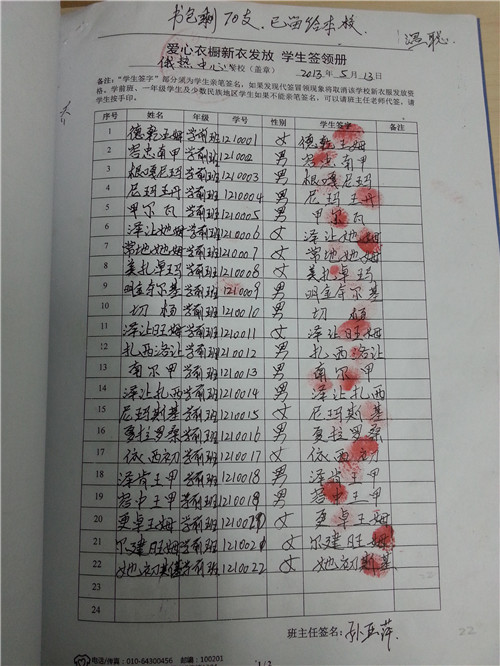 书包剩70支,已留给本校
冯聪
爱心衣橱新衣发放 学生签领册
俄热中心学校(盖章) 2013年5月13日
备注:“学生签字”部分须为学生亲笔签名,如果发现代签冒领现象将取消该学校新衣服发放资
格。学前班、一年级学生及少数民族地区学生如果不能亲笔签名,可以请班主任老师代签,请
学生按手印。
序号 姓名 年级 学号 性别 学生签字 备注
1 德乾王姆 学前班 1210001 女 德乾王姆
2 若忠南甲 学前班 121002 男 若忠南甲
3 根嘎尼玛 学前班 1210003 男 根嘎尼玛
4 尼玛王丹 学前班 1210004 男 尼玛王丹
5 甲尔瓦 学前班 1210005 男 甲尔瓦
6 泽让她姆 学前班 1210006 女 泽让她姆
7 常地她姆 学前班 1210007 女 常地她姆
8 美扎卓玛 学前班 1210008 女 美扎卓玛
9 明金奔尔基 学前班 1210009 男 明金奔尔基
10 切植 学前班 1210010 男 切植
11 泽让旺姆 学前班 1210011 女 泽让旺姆
12 扎西洛让 学前班 1210012 男 扎西洛让
13 南尔甲 学前班 1210013 男 南尔甲
14 泽让扎西 学前班 1210014 男 泽让扎西
15 尼玛斯基 学前班 1210015 女 尼玛斯基
16 夏拉罗桑 学前班 1210016 男 夏拉罗桑
17 依西初 学前班 1210017 女 依西初
18 泽肯王甲 学前班 1210018 男 泽肯王甲
19 若中王甲 学前班 1210019 男 若中王甲
20 更卓王姆 学前班 121002 女 更卓王姆
21 尔建旺姆 学前班 1210021 女 尔建旺姆
22 她初斯基 学前班 1210022 女 她初斯基
23
24
班主任签名:孙亚萍
22
电话/传真:010-64300456 邮编:100201
1/3